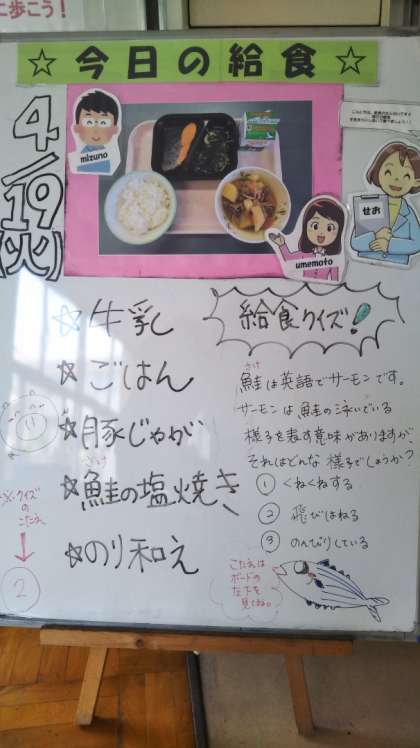 に歩こう!
☆今日の給食☆
4/19
(火)
mizuno
umemoto
せお
☆牛乳
☆ごはん
☆豚じゃが
さけ
☆鮭の塩焼き
☆のり和え
給食クイズ!
さけ
鮭は英語でサーモンです。
サーモンは鮭の泳いでいる
様子を表す意味がありますが、
それはどんな様子でしょうか?
① くねくねする
② 飛びはねる
③ のんびりしている
こたえは
ボードの
左下を
見てね。
※クイズ
の
こたえ
↓
②